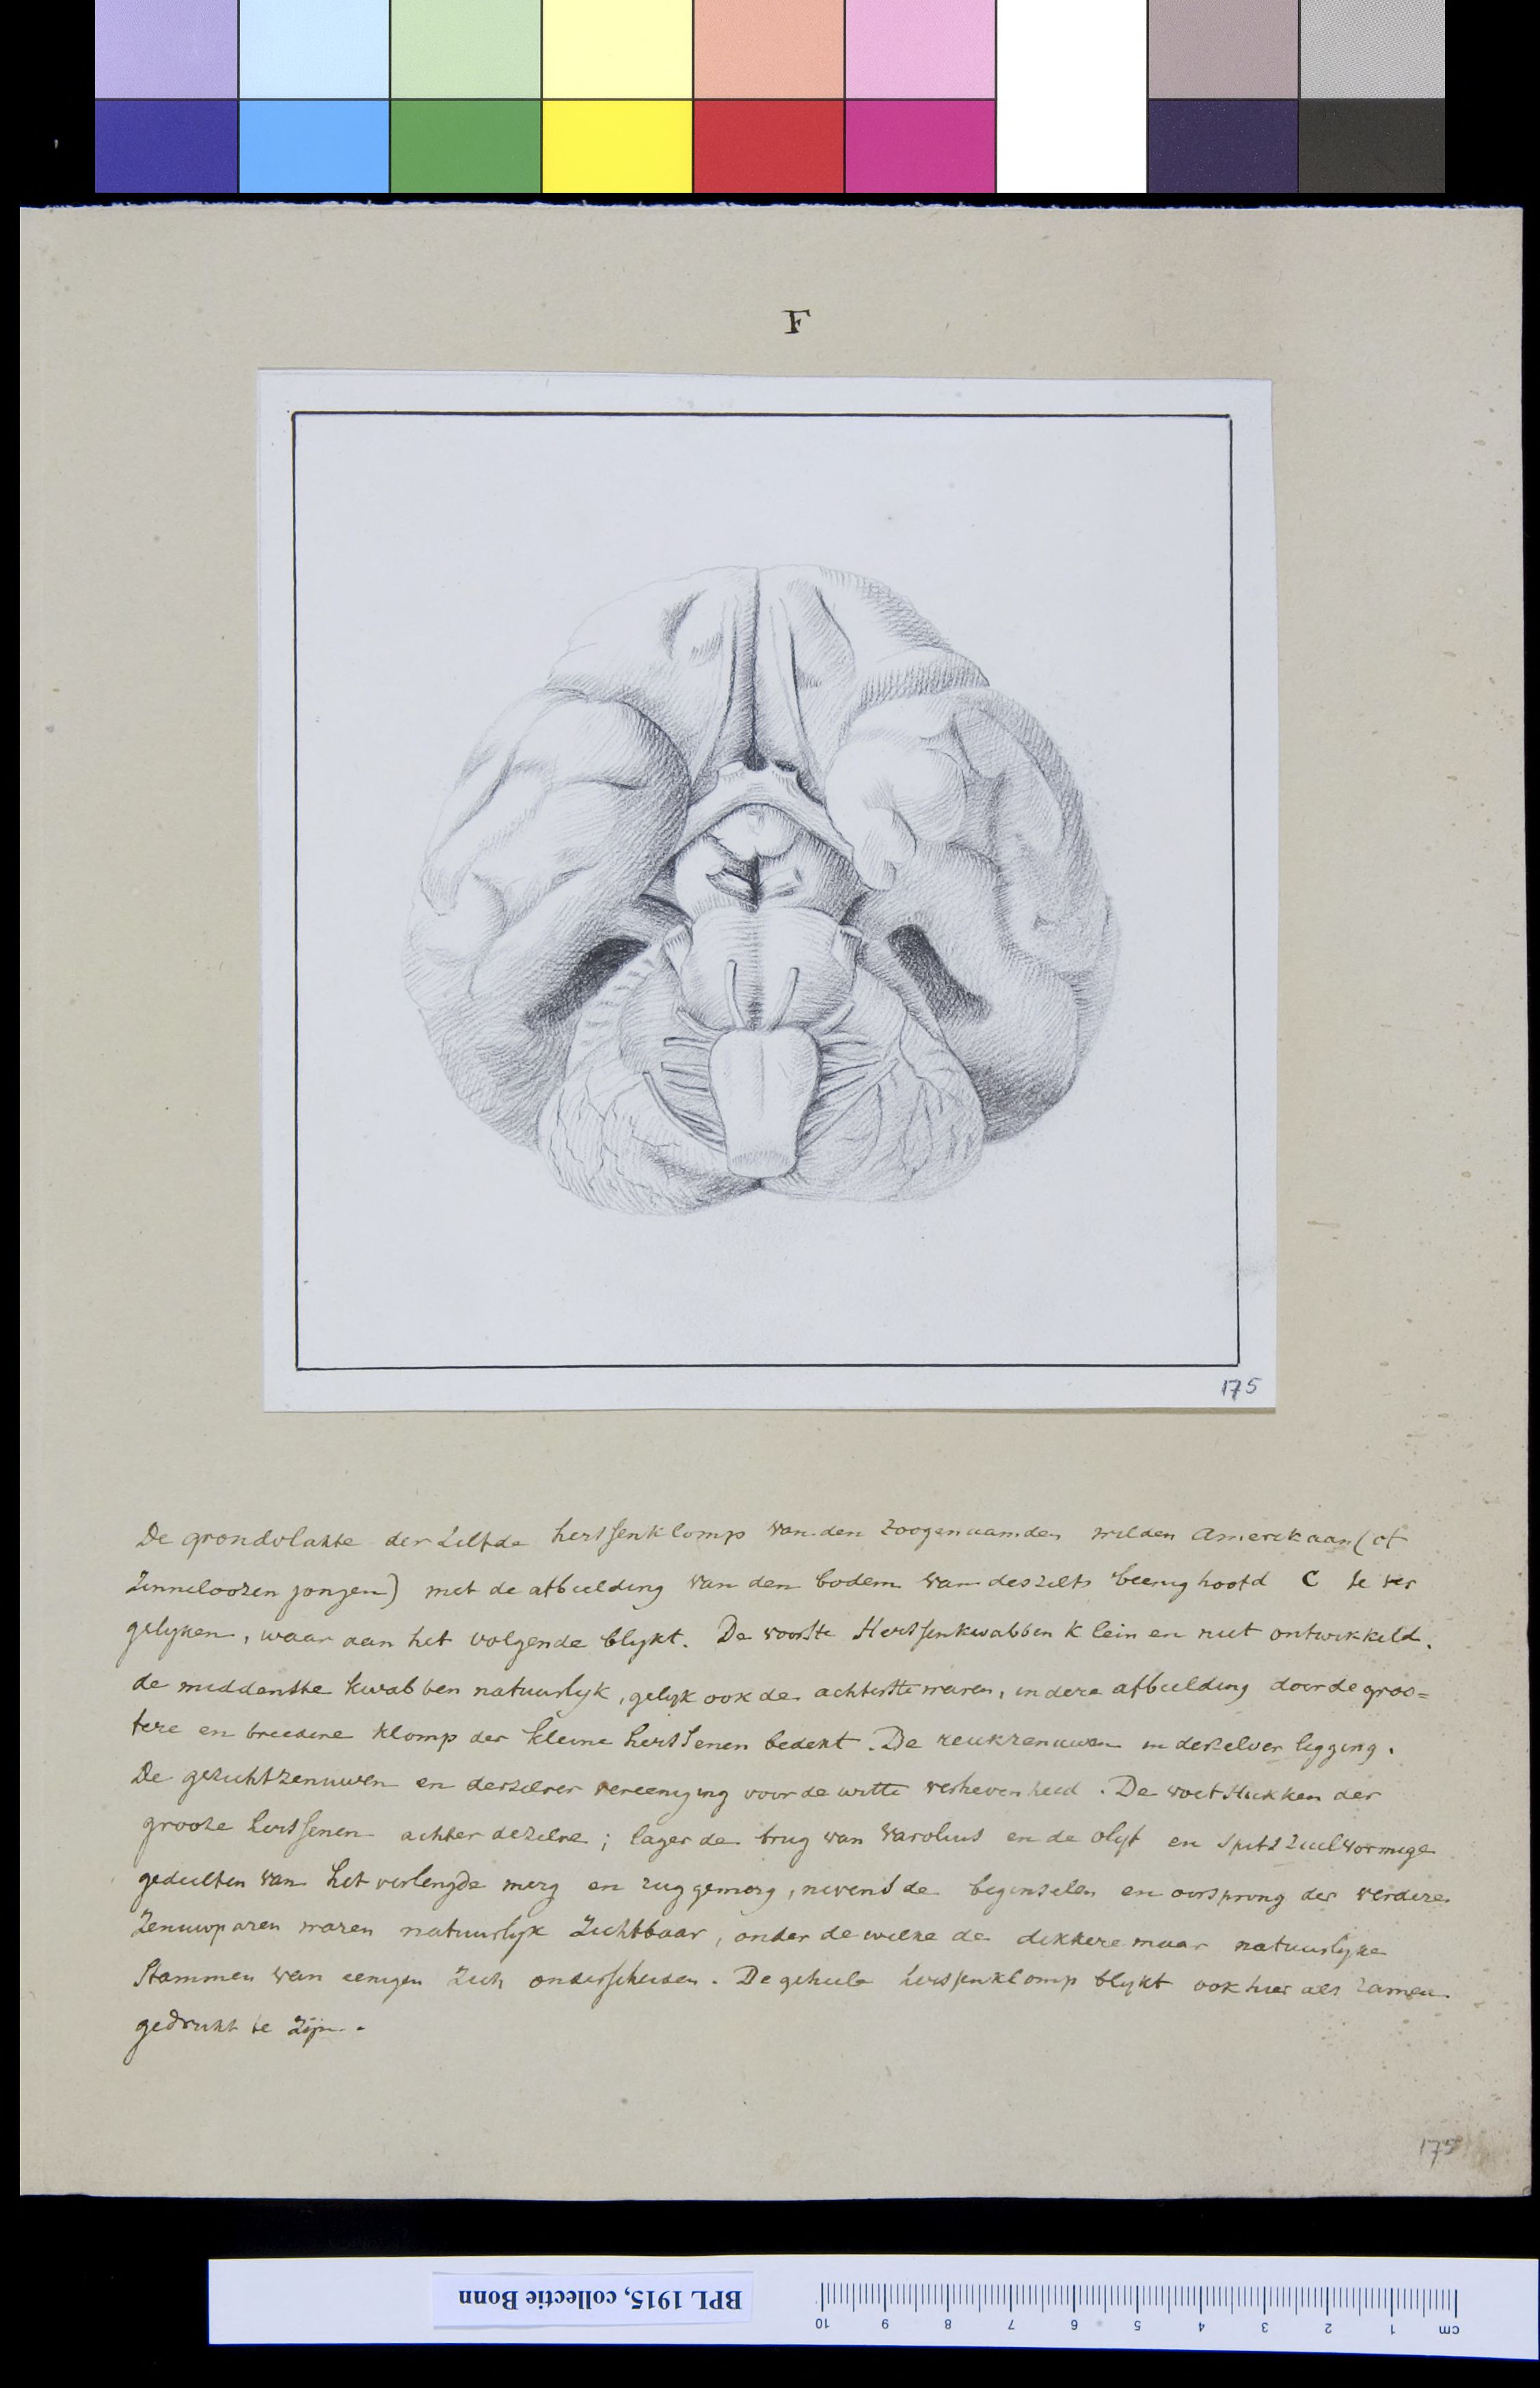 F
175
De grondvlakte der Zelfde hersfenklomps van den Zoogenaamden wilden Amerikaan (of
Zinneloozen jongen) met de afbeelding van den bodem van deszelfs beenig hoofd C te ver
gelyken, waar aan het volgende blykt. De voorste Hersfenkwabben klein en niet ontwikkeld.
de middenste kwabben natuurlyk, gelyk ook de achterste waren, in deze afbeelding door de groo=
tere en breedere klomp der kleine hersfenen bedekt. De reukzenuwen in derzelver ligging.
De gezichtzenuwen en derzelver vereeniging voor de witte verhevenheid. De voetstukken der
groote hersfenen achter dezelve; lager de brug van Varolius en de olyf en spits zuilvormige
gedeelten van het verlengde merg en ruggemerg, nevens de beginselen en oorsprong der verdere
Zenuwparen waren natuurlyk Zichtbaar, onder de welke de dikkere maar natuurlyke
Stammen van eenigen Zich onderscheiden. De geheele hersfenklomp blykt ook hier als zamen
gedrukt te Zijn.
175
BPL 1915, collectie Bonn
cm 1 2 3 4 5 6 7 8 9 10